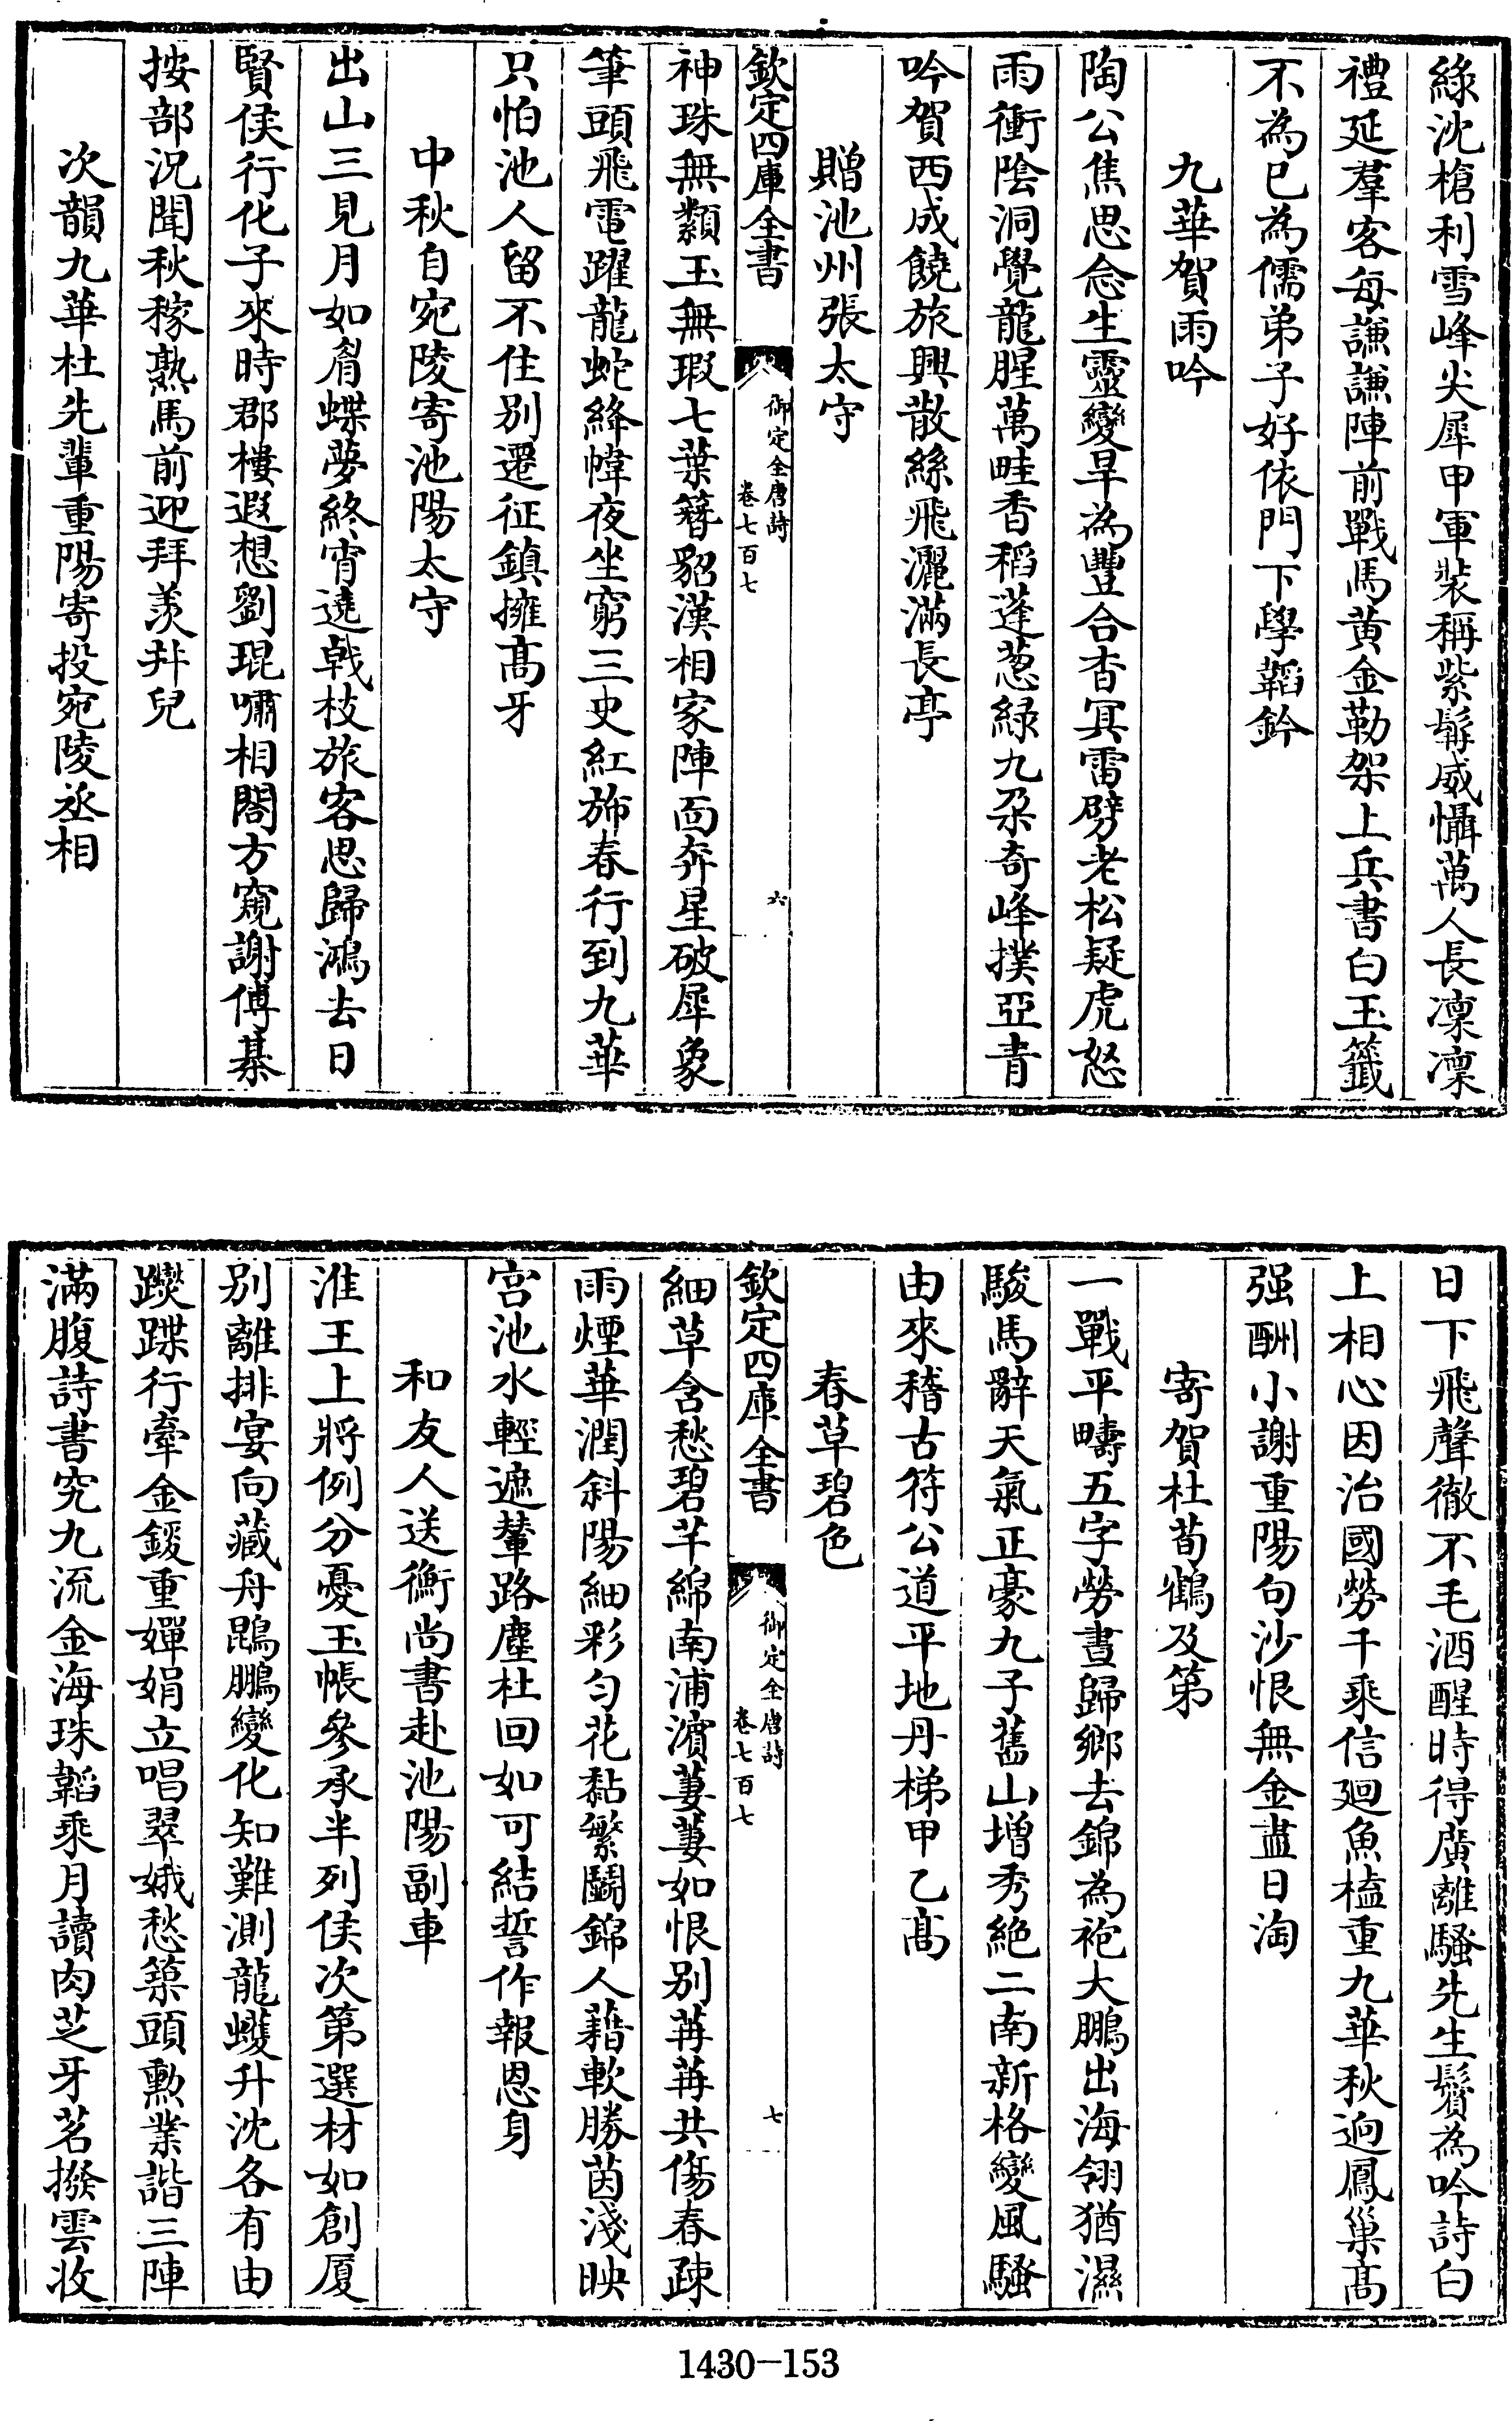 綠沈槍利雪峰尖犀甲軍裝稱紫髯威懾萬人長凜凜
禮延羣客每謙謙陣前戰馬黄金勒架上兵書白玉籤
不為已為儒弟子好依門下學韜鈐
九華賀雨吟
陶公焦思念生靈變旱為豐合杳冥雷劈老松疑虎怒
雨衝陰洞覺龍腥萬畦香稻蓬葱緑九朶奇峰撲亞青
吟賀西成饒旅興散絲飛灑滿長亭
贈池州張太守
欽定四庫全書
御定全唐詩
卷七百七
六
神珠無纇玉無瑕七葉簪貂漢相家陣面奔星破犀象
筆頭飛電躍龍蛇絳幃夜坐窮三史紅斾春行到九華
只怕池人留不住别遷征鎮擁髙牙
中秋自宛陵寄池陽太守
出山三見月如眉蝶夢終宵遶戟枝旅客思歸鴻去日
賢侯行化子來時郡樓遐想劉琨嘯相閣方窺謝傅棊
按部況聞秋稼熟馬前迎拜羨并兒
次韻九華杜先輩重陽寄投宛陵丞相
日下飛聲徹不毛酒醒時得廣離騷先生鬢為吟詩白
上相心因治國勞千乘信廻魚榼重九華秋逈鳳巢髙
强酬小謝重陽句沙恨無金盡日淘
寄賀杜荀鶴及第
一戰平疇五字勞晝歸鄉去錦為袍大鵬出海翎猶濕
駿馬辭天氣正豪九子舊山增秀絶二南新格變風騷
由來稽古符公道平地丹梯甲乙髙
春草碧色
欽定四庫全書
御定全唐詩
卷七百七
七
細草含愁碧芊綿南浦濵萋萋如恨别苒苒共傷春疎
雨煙華潤斜陽細彩匀花黏繁鬭錦人藉軟勝茵淺映
宫池水輕遮輦路塵杜回如可結誓作報恩身
和友人送衡尚書赴池陽副車
淮王上將例分憂玉帳參承半列侯次第選材如創厦
别離排宴向藏舟鵾鵬變化知難測龍蠖升沈各有由
躞蹀行牽金鍐重嬋娟立唱翠娥愁築頭勲業諧三陣
滿腹詩書究九流金海珠韜乘月讀肉芝牙茗撥雲收
1430-153